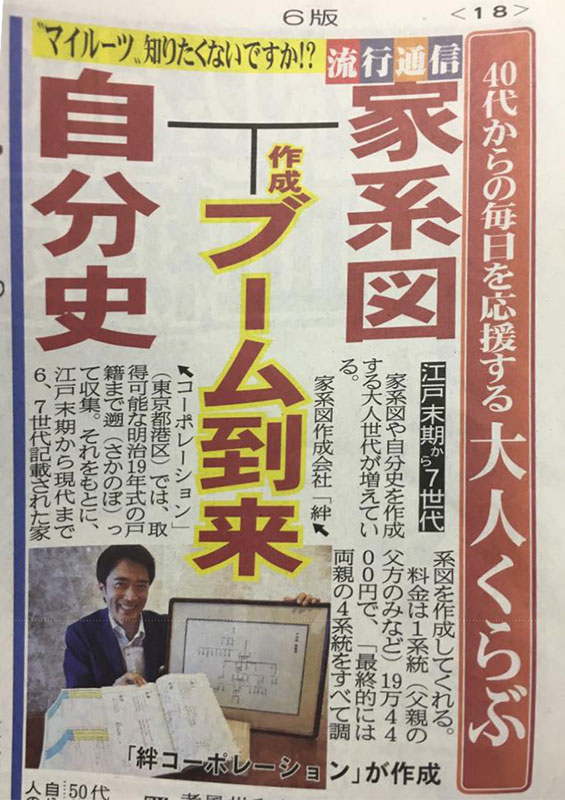 6版
<18>
40代からの毎日を応援する 大人くらぶ
"マイルーツ"知りたくないですか!?
流行通信
家系図
自分史
作成
ブーム到来
江戸末期から7世代
家系図や自分史を作成
する大人世代が増えてい
る。
家系図作成会社「絆
コーポレーション」
(東京都港区)では、取
得可能な明治19年式の戸
籍まで遡(さかのぼ)っ
て収集。それをもとに、
江戸末期から現代まで
6、7世代記載された家
系図を作成してくれる。
料金は1系統(父親の
父方のみなど)19万44
00円で、「最終的には
両親の4系統をすべて調
「絆コーポレーション」が作成
50代